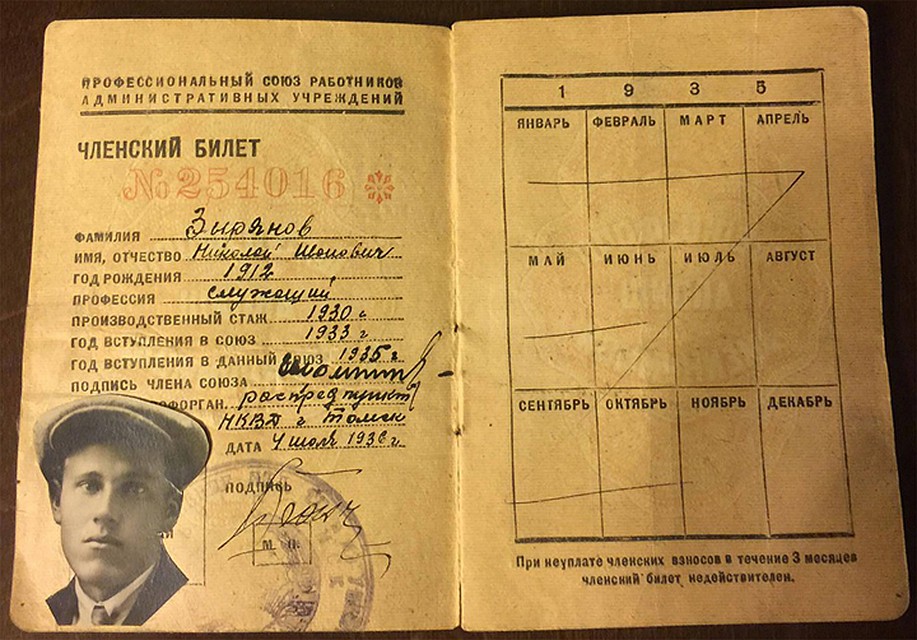 ПРОФЕССИОНАЛЬНЫЙ СОЮЗ РАБОТНИКОВ
АДМИНИСТРАТИВНЫХ УЧРЕЖДЕНИЙ
ЧЛЕНСКИЙ БИЛЕТ
№254016
ФАМИЛИЯ Зырянов
ИМЯ, ОТЧЕСТВО Николай
ГОД РОЖДЕНИЯ 1912
ПРОФЕССИЯ служащий
ПРОИЗВОДСТВЕННЫЙ СТАЖ 1930 г
ГОД ВСТУПЛЕНИЯ В СОЮЗ 1933 г
ГОД ВСТУПЛЕНИЯ В ДАННЫЙ СОЮЗ 1935 г
ПОДПИСЬ ЧЛЕНА СОЮЗА
ОФОРГАН. распред пункт
НКВД г Томск
ДАТА 4 июля 1936 г.
ПОДПИСЬ
М. П.
1935
ЯНВАРЬ ФЕВРАЛЬ МАРТ АПРЕЛЬ
МАЙ ИЮНЬ ИЮЛЬ АВГУСТ
СЕНТЯБРЬ ОКТЯБРЬ НОЯБРЬ ДЕКАБРЬ
При неуплате членских взносов в течение 3 месяцев
членский билет недействителен.